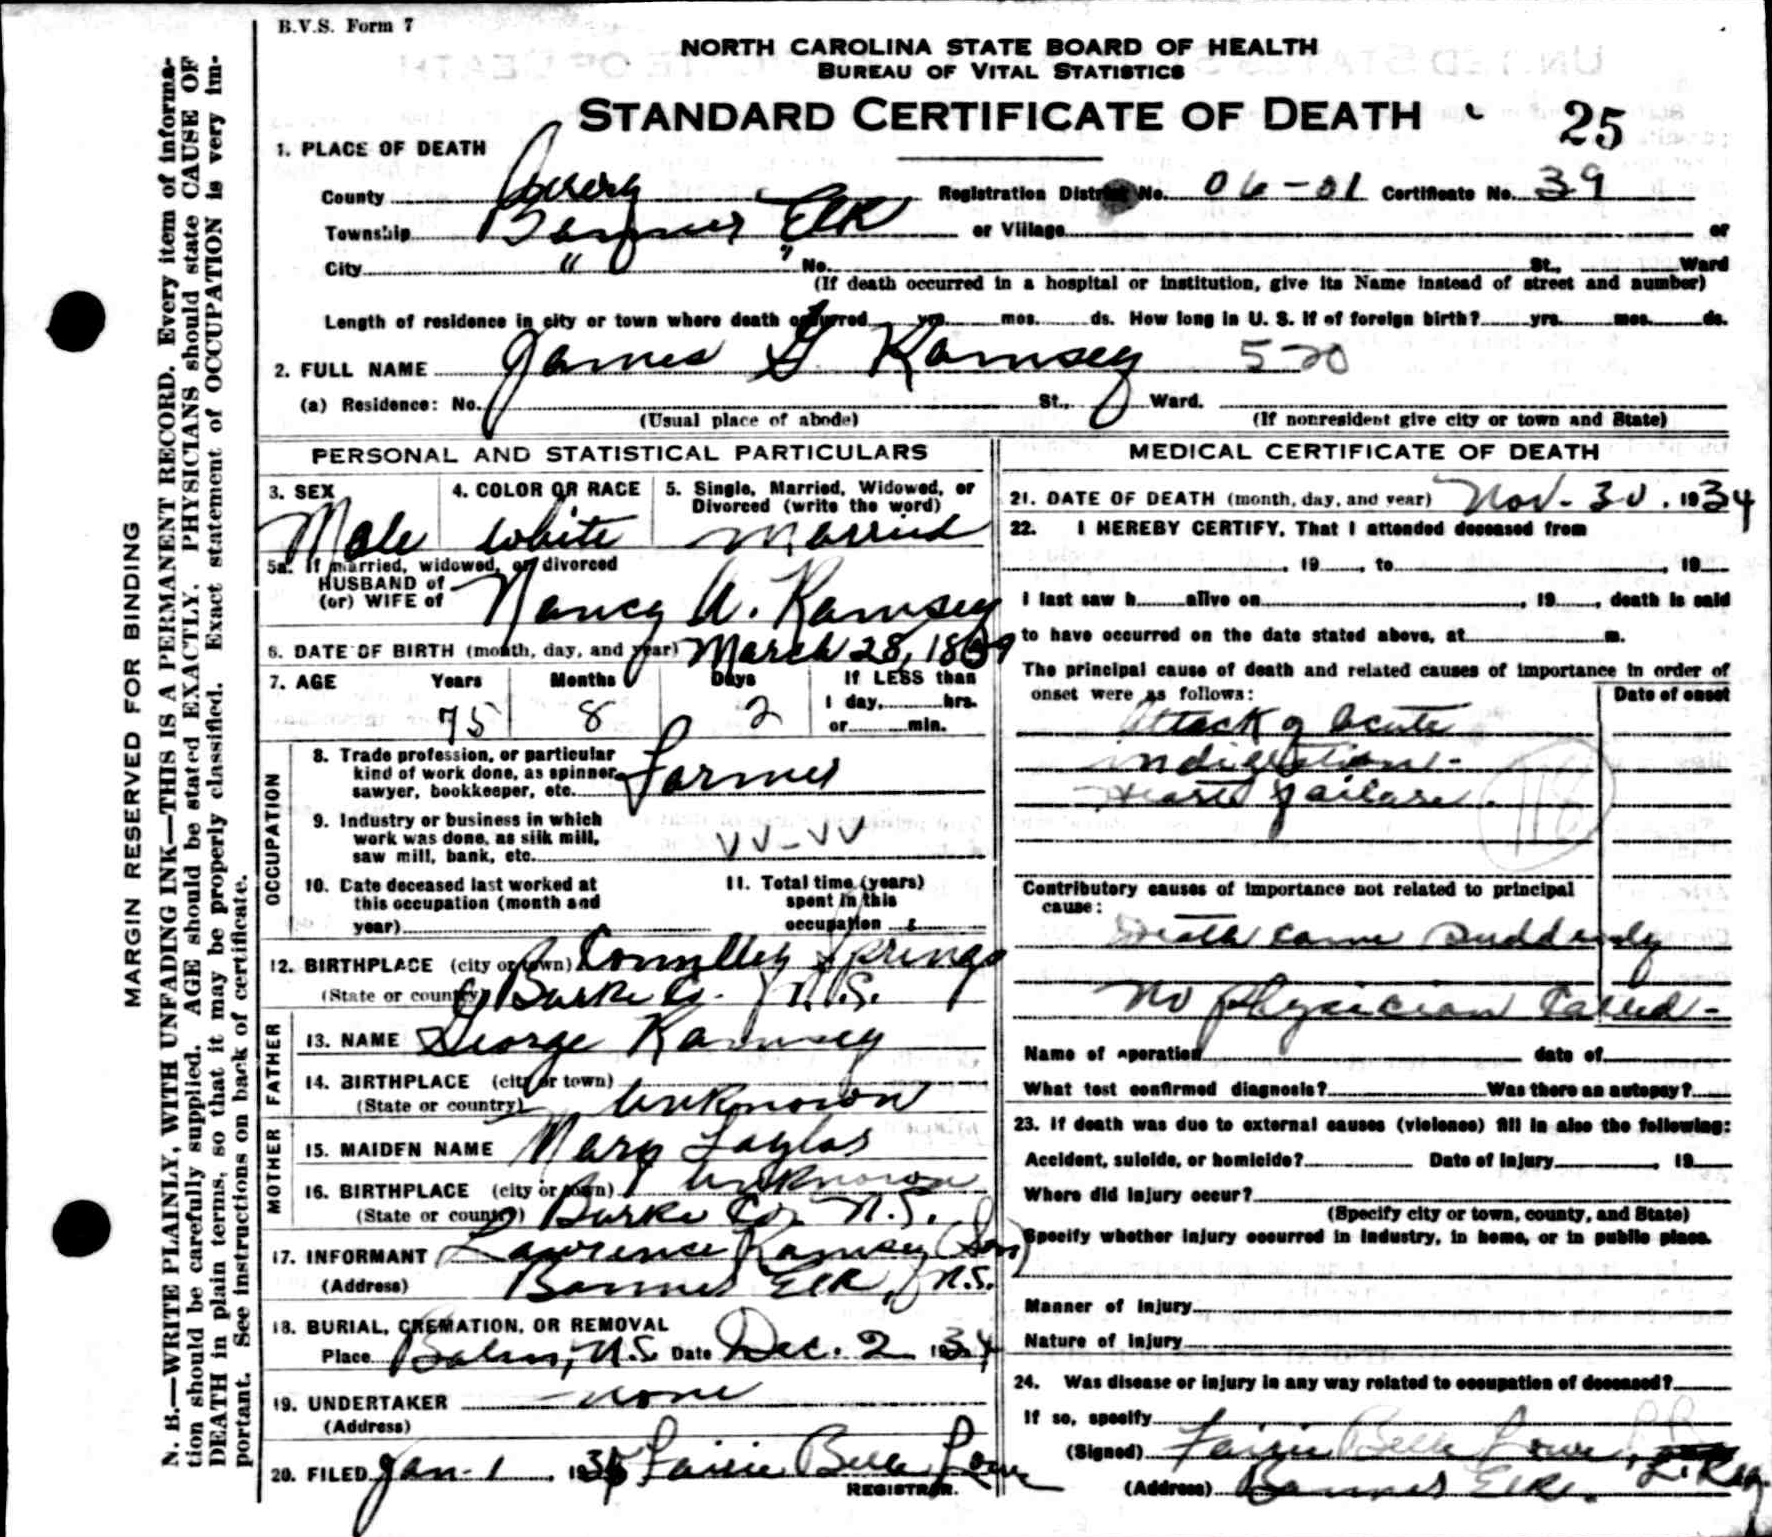 B.V.S. Form 7
NORTH CAROLINA STATE BOARD OF HEALTH
BUREAU OF VITAL STATISTICS
STANDARD CERTIFICATE OF DEATH 25
MARGIN RESERVED FOR BINDING
N. B.—WRITE PLAINLY, WITH UNFADING INK—THIS IS A PERMANENT RECORD. Every item of informa-
tion should be carefully supplied. AGE should be stated EXACTLY. PHYSICIANS should state CAUSE OF
DEATH in plain terms, so that it may be properly classified. Exact statement of OCCUPATION is very im-
portant. See instructions on back of certificate.
1. PLACE OF DEATH
County Avery Registration District No. 06-01 Certificate No. 39
Township Banner Elk or Village or
City " " No. St., Ward
(If death occurred in a hospital or institution, give its Name instead of street and number)
Length of residence in city or town where death occurred yrs. mos. ds. How long in U. S. if of foreign birth? yrs. mos. ds.
2. FULL NAME James G. Ramsey 520
(a) Residence: No. St., Ward.
(Usual place of abode) (If nonresident give city or town and State)
PERSONAL AND STATISTICAL PARTICULARS
3. SEX 4. COLOR OR RACE 5. Single, Married, Widowed, or
Divorced (write the word)
Male White Married
5a. If married, widowed, or divorced
HUSBAND of
(or) WIFE of Nancy A. Ramsey
6. DATE OF BIRTH (month, day, and year) March 28, 1859
7. AGE Years Months Days If LESS than
1 day, hrs.
75 8 2 or min.
OCCUPATION
8. Trade profession, or particular
kind of work done, as spinner,
sawyer, bookkeeper, etc. Farmer
9. Industry or business in which
work was done, as silk mill,
saw mill, bank, etc. VV-VV
10. Date deceased last worked at
this occupation (month and
year)
11. Total time (years)
spent in this
occupation
12. BIRTHPLACE (city or town) Connelley Springs
(State or country) Burke Co. N.C.
FATHER
13. NAME George Ramsey
14. BIRTHPLACE (city or town)
(State or country) Unknown
MOTHER
15. MAIDEN NAME Mary Taylor
16. BIRTHPLACE (city or town) Unknown
(State or country) Burke Co. N.C.
17. INFORMANT Lawrence Ramsey (Son)
(Address) Banner Elk, N.C.
18. BURIAL, CREMATION, OR REMOVAL
Place Balm, N.C. Date Dec. 2 1934
19. UNDERTAKER none
(Address)
20. FILED Jan-1, 1935 Fairie Belle Lowe
REGISTRAR.
MEDICAL CERTIFICATE OF DEATH
21. DATE OF DEATH (month, day, and year) Nov-30, 1934
22. I HEREBY CERTIFY, That I attended deceased from
, 19 , to , 19
I last saw h alive on , 19 , death is said
to have occurred on the date stated above, at m.
The principal cause of death and related causes of importance in order of
onset were as follows: Date of onset
Attack of Acute
indigestion-
Heart failure.
Contributory causes of importance not related to principal
cause:
Death came suddenly
No physician called-
Name of operation date of
What test confirmed diagnosis? Was there an autopsy?
23. If death was due to external causes (violence) fill in also the following:
Accident, suicide, or homicide? Date of injury , 19
Where did injury occur?
(Specify city or town, county, and State)
Specify whether injury occurred in industry, in home, or in public place.
Manner of injury
Nature of injury
24. Was disease or injury in any way related to occupation of deceased?
If so, specify
(Signed) Fairie Belle Lowe, L. Reg
(Address) Banner Elk.